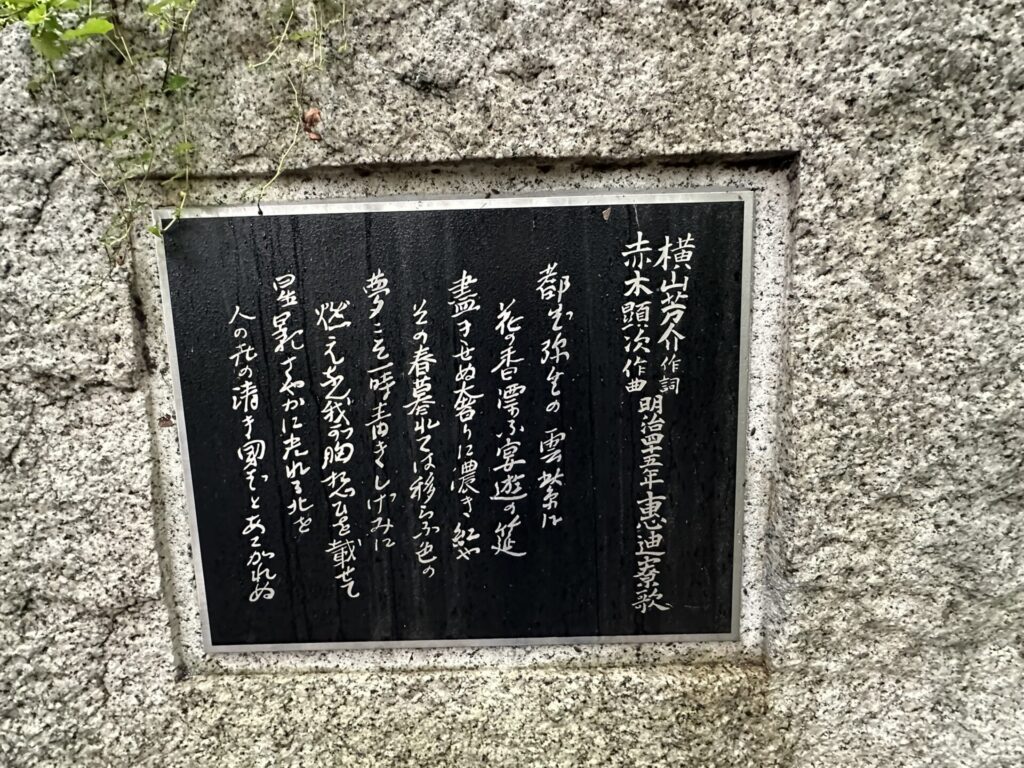 横山芳介作詞
赤木顕次作曲 明治四十五年 惠迪寮歌
都ぞ弥生の雲紫に
花の香漂ふ宴遊の筵
盡きせぬ奢りに濃き紅や
その春暮れては移らふ色の
夢こそ一時青きしげみに
燃えなん我が胸想ひを載せて
星影さやかに光れる北を
人の世の清き國ぞとあこがれぬ